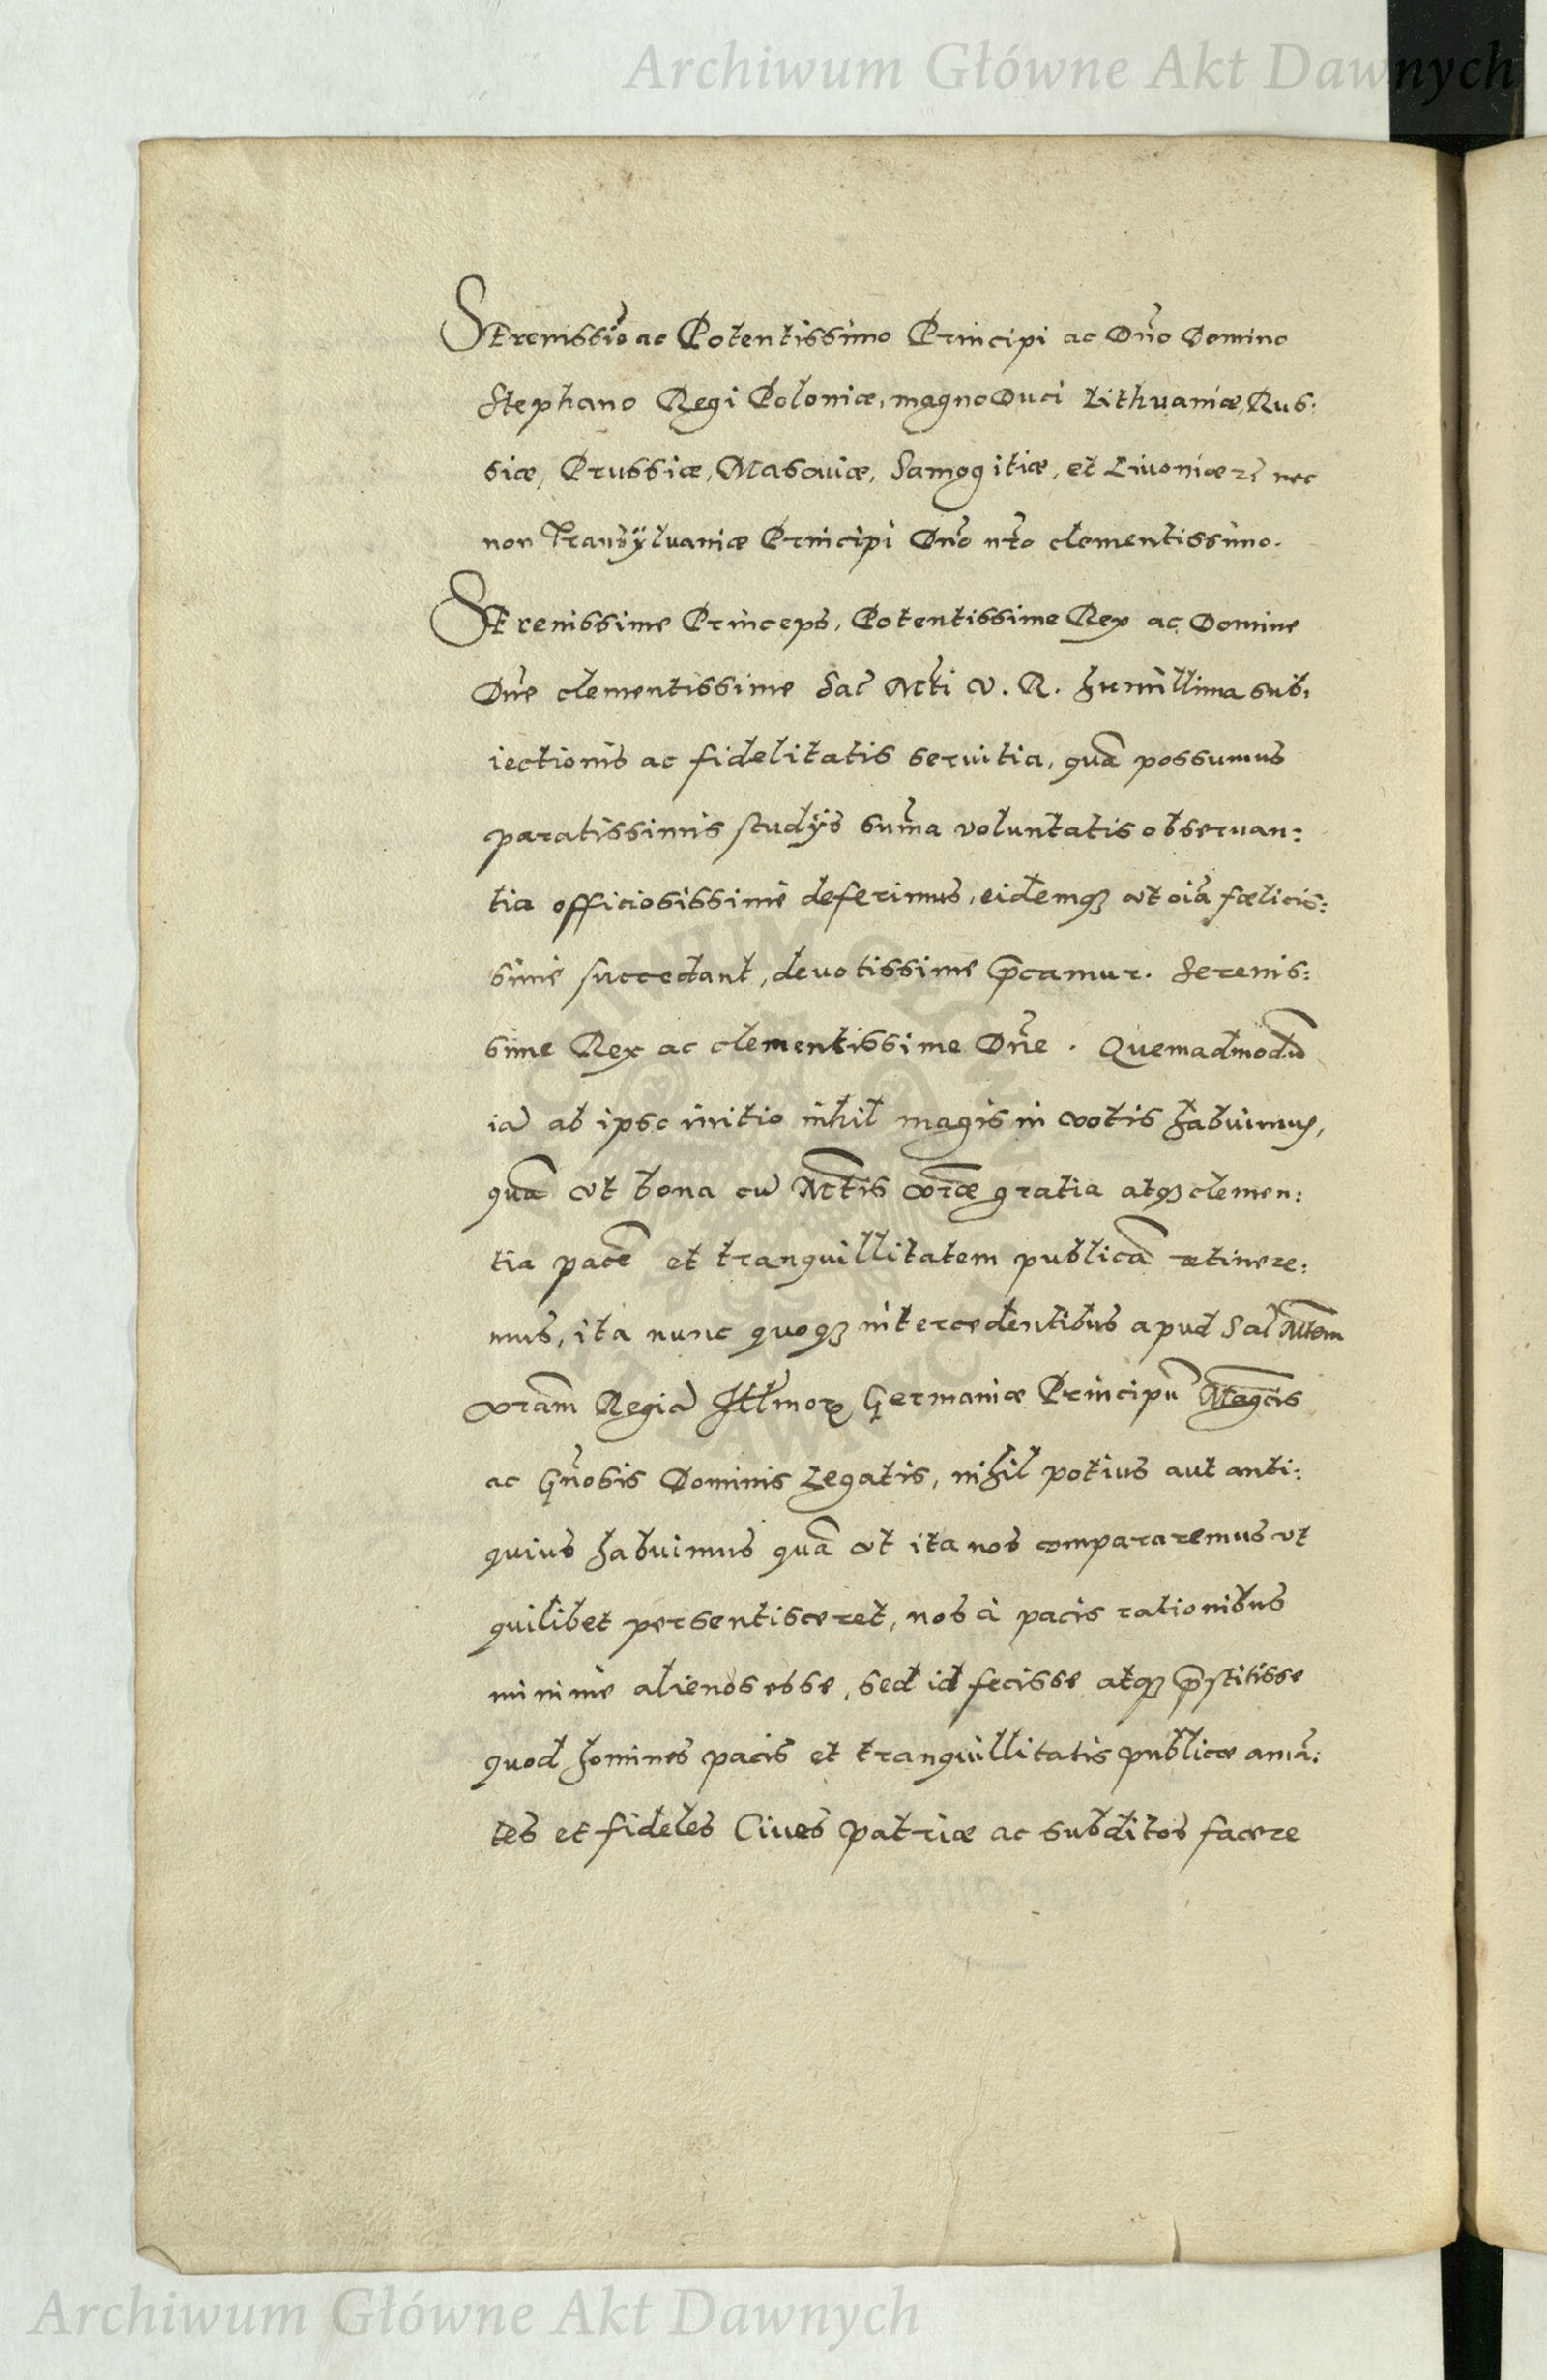 Archiwum Główne Akt Dawnych
SErenissĩo ac Potentissimo Principi ac Dño Domino
Stephano Regi Poloniæ, magno Duci Lithuaniæ, Rus:
siæ, Prussiæ, Masouiæ, Samogitiæ, et Liuoniæ ꝛc̃ nec
non Transÿluaniæ Principi Dño nr̃o clementissimo.
SErenissime Princeps, Potentissime Rex ac Domine
Dñe clementissime Sac̃ Mt̃i V. R. humillima sub:
iectionis ac fidelitatis seruitia, quã possumus
paratissimis studÿs sum̃a voluntatis obseruan:
tia officiosissimè deferimus, eidemqȝ vt oĩa fœlicis:
simè succedant, deuotissime p̃camur. Serenis:
sime Rex ac clementissime Dñe. Quemadmodũ
iã ab ipso initio nihil magis in votis habuimus,
quã vt bona cũ Mt̃is vr̃æ gratia atqȝ clemen:
tia pacẽ et tranquillitatem publicã retinere:
mus, ita nunc quoqȝ intercedentibus apud Sac̃ Mt̃em
vr̃am Regiã Ill̃morꝝ Germaniæ Principũ Mag̃cis
ac Gñosis Dominis Legatis, nihil potius aut anti:
quius habuimus quã vt ita nos compararemus vt
quilibet persentisceret, nos à pacis rationibus
minimè alienos esse, sed id fecisse atqȝ p̃stitisse
quod homines pacis et tranquillitatis publicæ amã:
tes et fideles Ciues patriæ ac subditos facere
Archiwum Główne Akt Dawnych